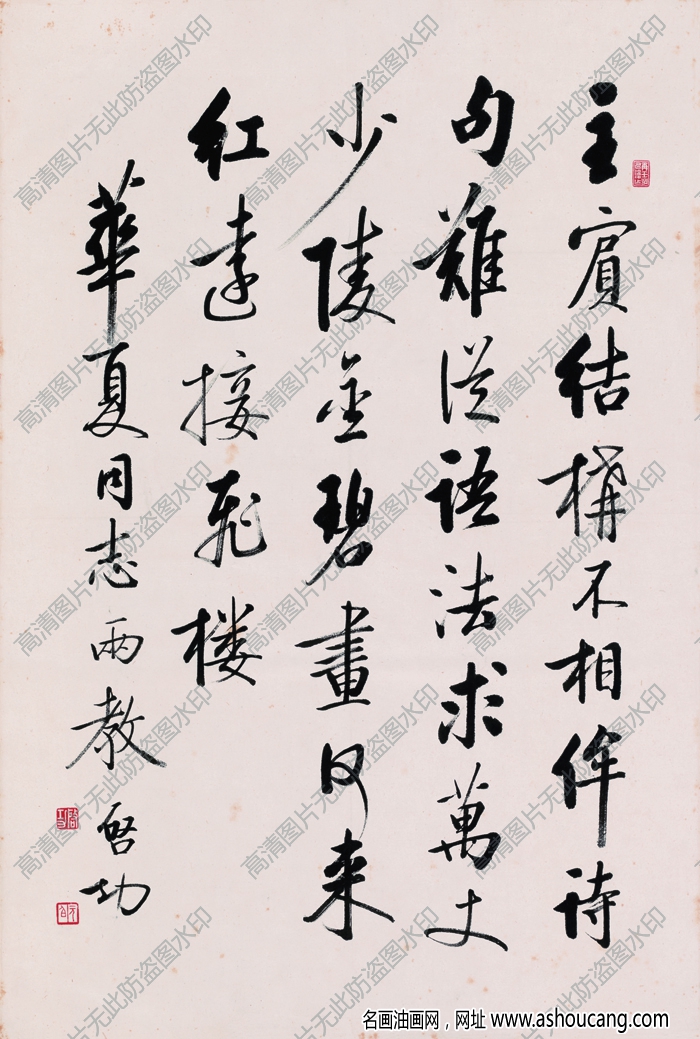 主賓結構不相侔詩
句難従語法求萬丈
少陵金碧畫何来
紅遠接飛楼
華夏同志兩教 啓功
高清图片无此防盗图水印
名画油画网，网址 www.ashoucang.com